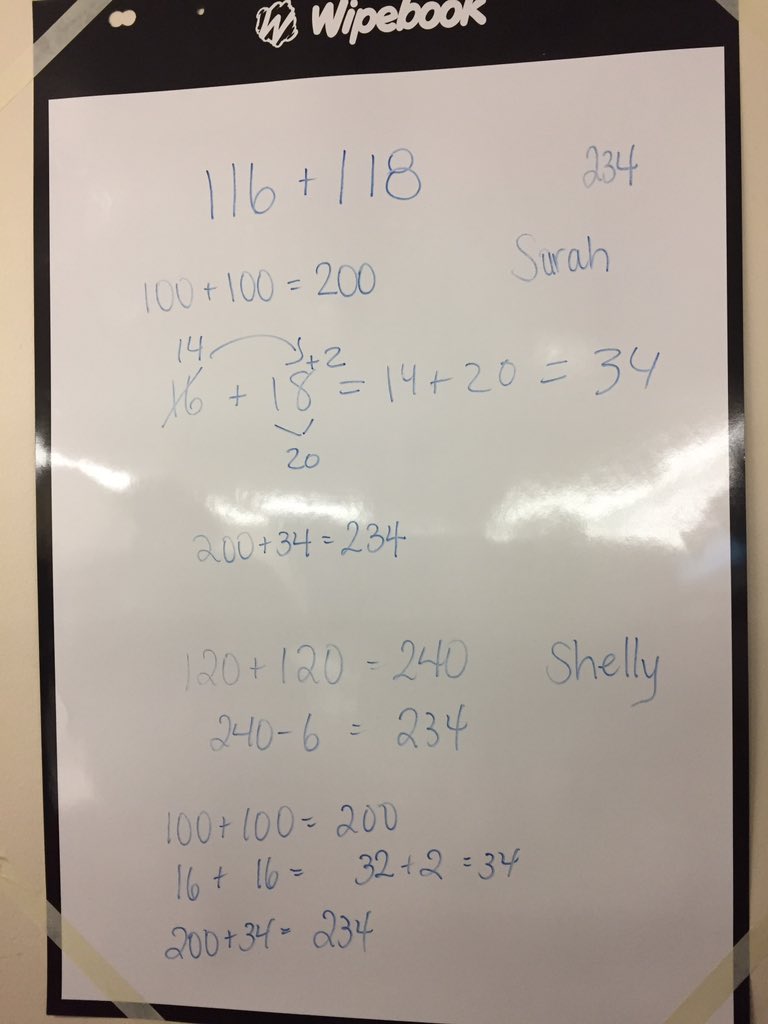 Wipebook
116 + 118
234
Surah
100 + 100 = 200
14 +2
16 + 18 = 14 + 20 = 34
20
200 + 34 = 234
120 + 120 = 240
Shelly
240 - 6 = 234
100 + 100 = 200
16 + 16 = 32 + 2 = 34
200 + 34 = 234